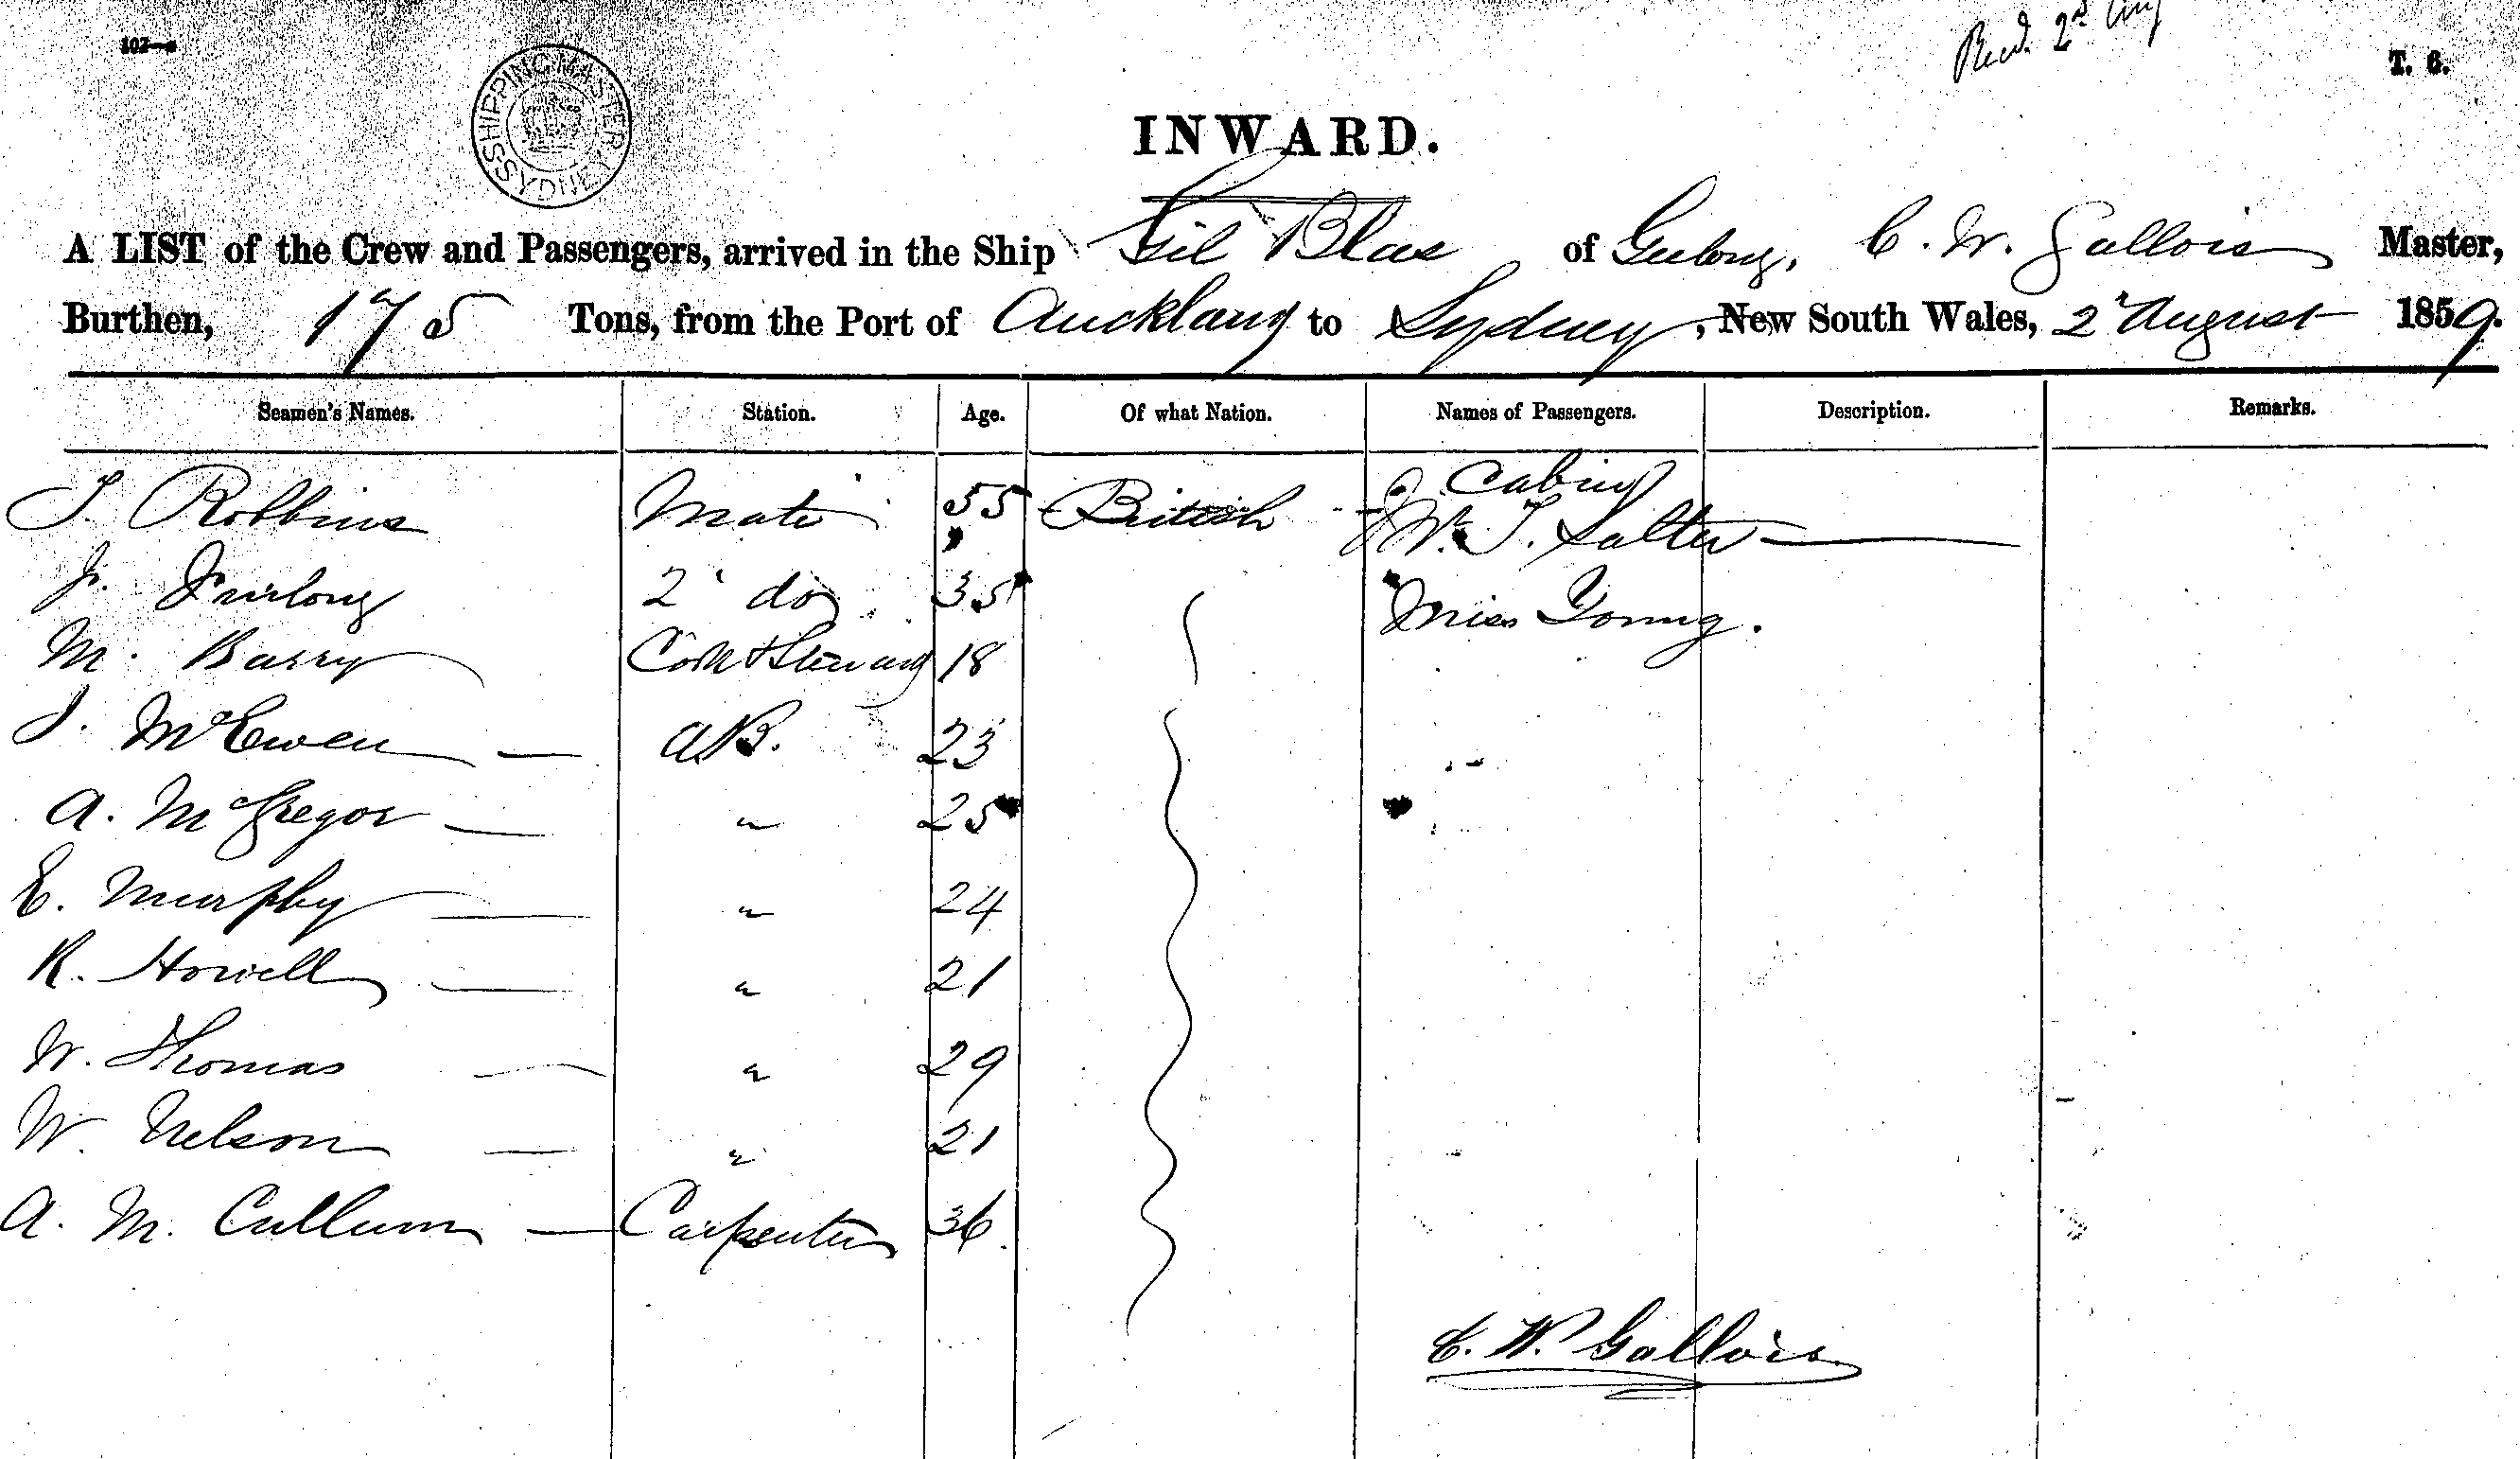 102—a
Recd. 2nd Aug
T. 6.
SHIPPING MASTER SYDNEY
INWARD.
A LIST of the Crew and Passengers, arrived in the Ship Gil Blas of Geelong, C. W. Gallois Master,
Burthen, 175 Tons, from the Port of Auckland to Sydney, New South Wales, 2 August 1859.
Seamen's Names. Station. Age. Of what Nation. Names of Passengers. Description. Remarks.
Cabin
J. Robbins Mate 55 British Mr. T. Salter
J. Furlong 2 do 35 Miss Young.
M. Barry Cook & Steward 18
J. McEwen A.B. 23
A. McGregor " 25
E. Murphy " 24
R. Howell " 21
W. Thomas " 29
W. Nelson " 21
A. M. Cullum Carpenter 36
C. W. Gallois